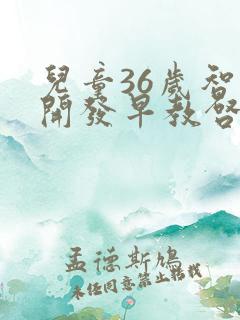 兒童36歲智
開發早教啓
孟德斯鳩
未经同意禁止转载